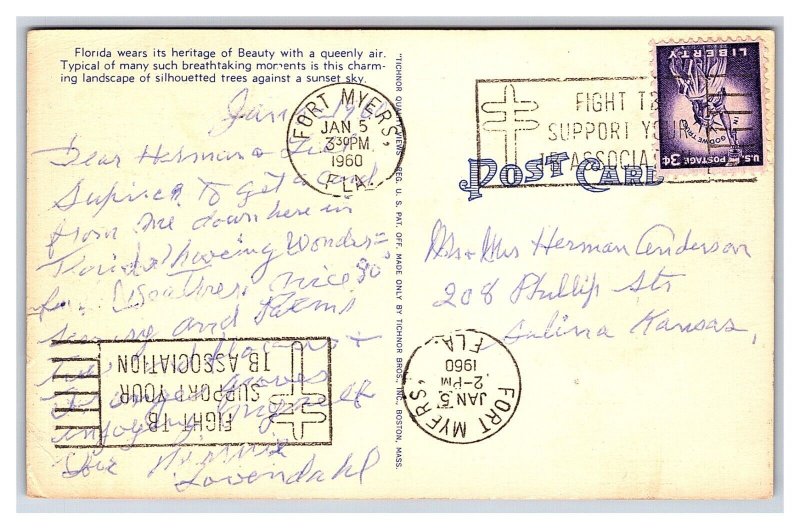 Florida wears its heritage of Beauty with a queenly air.
Typical of many such breathtaking moments is this charm-
ing landscape of silhouetted trees against a sunset sky.
Dear Herman &
Suprised to get a card
from me down here in
Florida having Wonder-
ful Weather, nice 80°
and Palms
enjoying myself
Minnie
Lovendahl
"TICHNOR QUALITY VIEWS," REG. U. S. PAT. OFF. MADE ONLY BY TICHNOR BROS., INC., BOSTON, MASS.
FORT MYERS,
JAN 5
3 30 PM
1960
FLA.
FIGHT TB
SUPPORT YOUR
TB ASSOCIATION
LIBERTY
IN GOD WE TRUST
U.S. POSTAGE 3¢
POST CARD
Mr & Mrs Herman Anderson
208 Phillip Str
Salina Kansas,
FORT MYERS,
JAN 5
2-PM
1960
FLA.
FIGHT TB
SUPPORT YOUR
TB ASSOCIATION